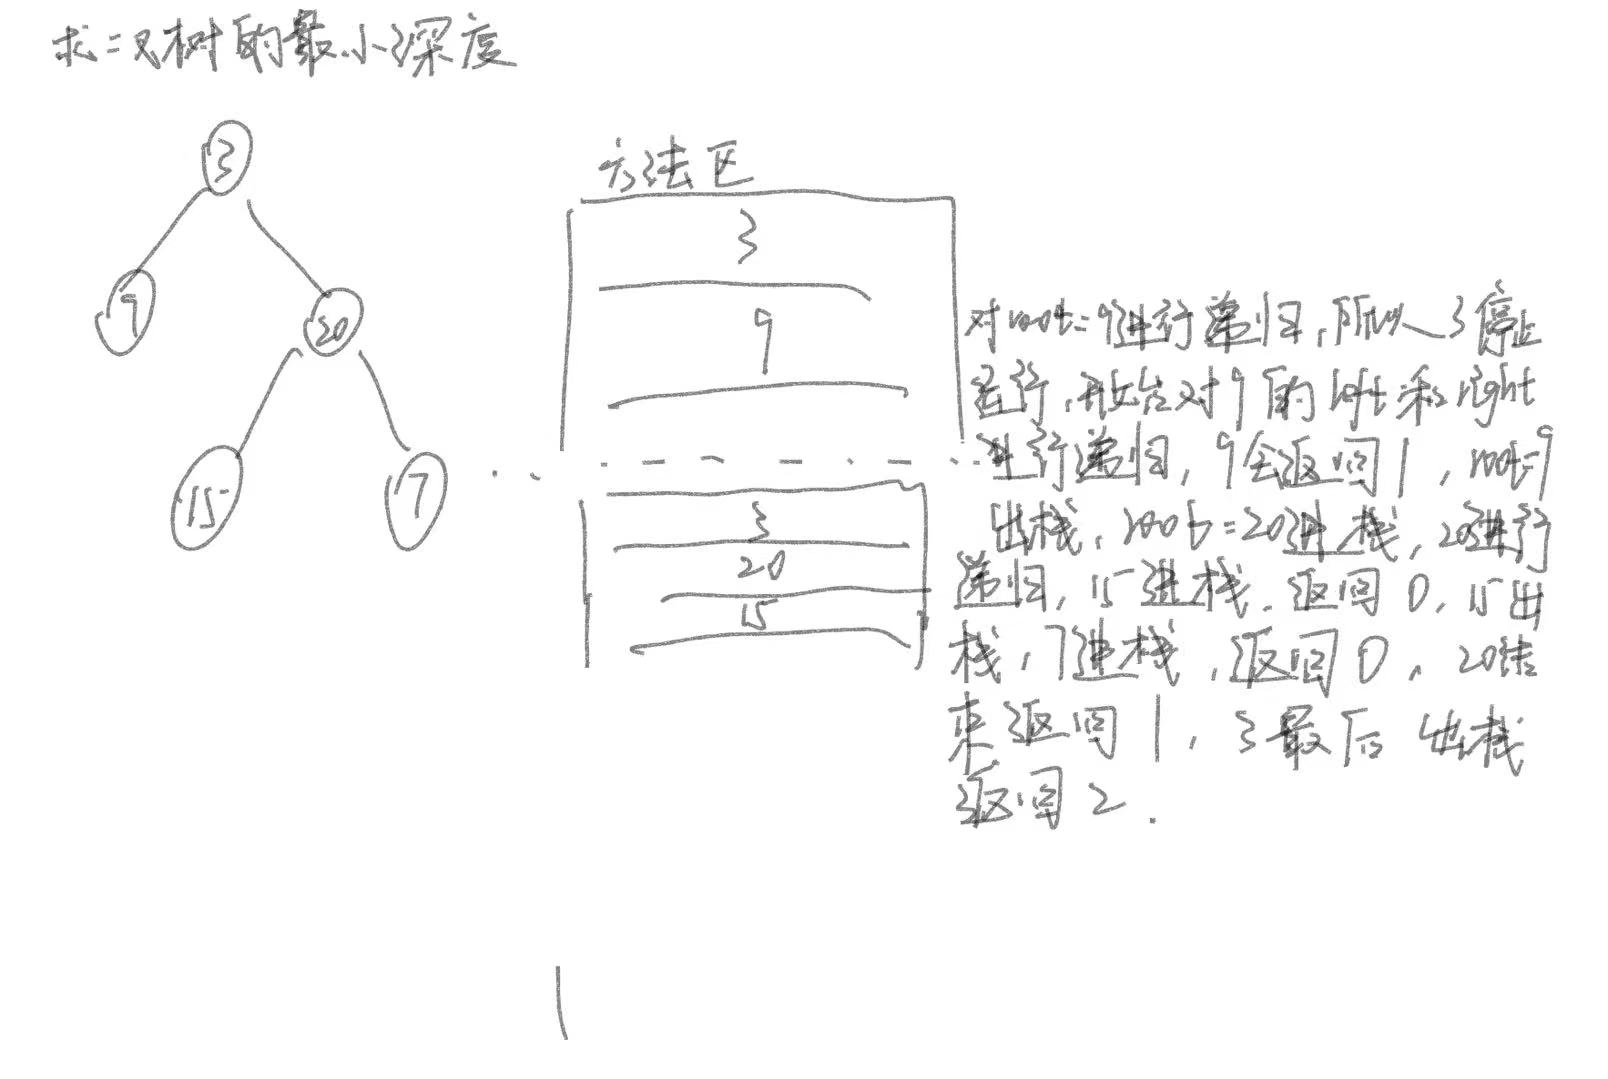 求二叉树的最小深度
3
9
20
15
7
方法区
3
9
3
20
15
对root=9进行递归,所以3停止
运行,开始对9的left和right
进行递归,9会返回1,root=9
出栈,root=20进栈,20进行
递归,15进栈,返回0,15出
栈,7进栈,返回0,20结
束返回1,3最后出栈
返回2.